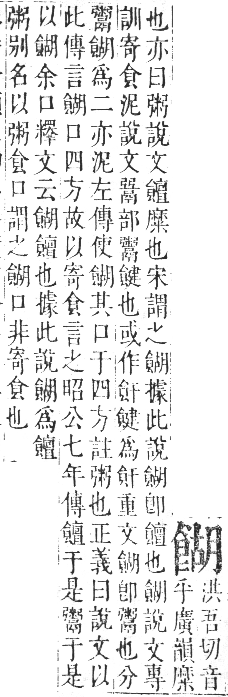 餬
洪吾切音
乎廣韻糜
也亦曰粥說文饘糜也宋謂之餬據此說餬卽饘也餬說文專
訓寄食泥說文䰜部鬻䭈也或作飦䭈爲飦重文餬卽鬻也分
鬻餬爲二亦泥左傳使餬其口于四方註粥也正義曰說文以
此傳言餬口四方故以寄食言之昭公七年傳饘于是鬻于是
以餬余口釋文云餬饘也據此說餬爲饘
粥别名以粥食口謂之餬口非寄食也